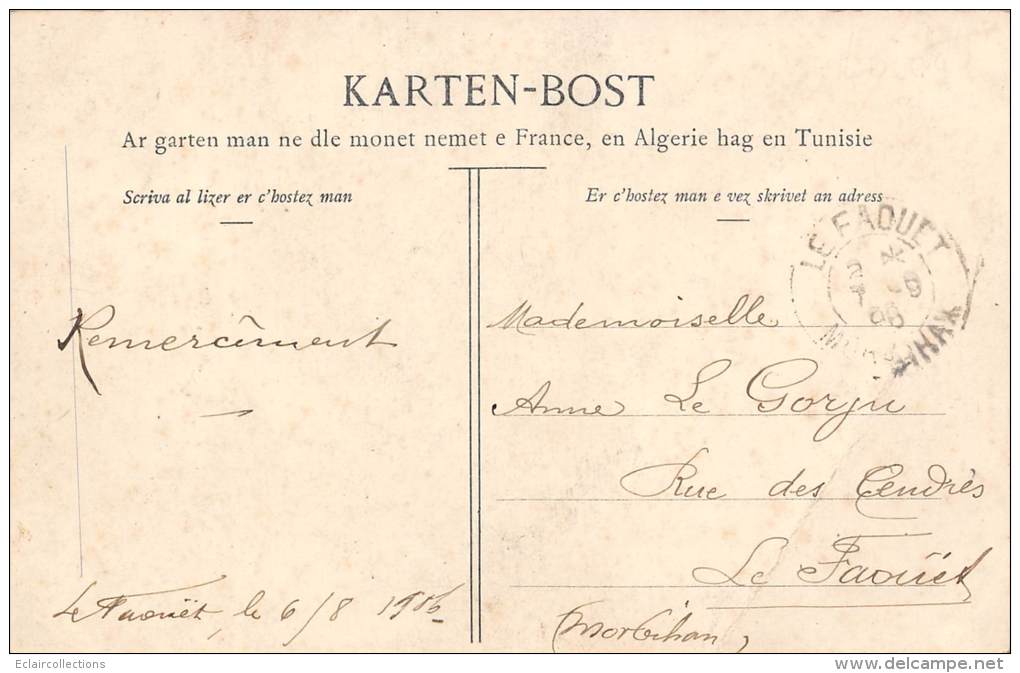 KARTEN-BOST
Ar garten man ne dle monet nemet e France, en Algerie hag en Tunisie
Scriva al lizer er c'hostez man
Er c'hostez man e vez skrivet an adress
LE FAOUET
Remercîment
Le Faouët, le 6/8 1906
Mademoiselle
Anne Le Gorju
Rue des Cendrès
Le Faouët
(Morbihan)
Eclaircollections
www.delcampe.net